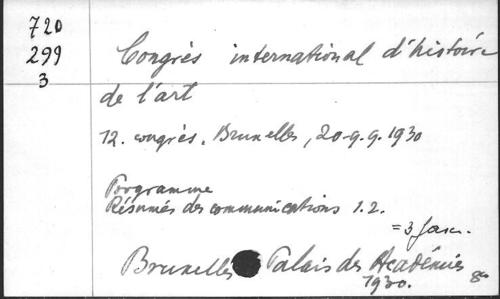 720
299
3
Congrès international d'histoire
de l'art
12. congrès. Bruxelles, 20-9.9.1930
Porgramme
Résumés des communications 1.2.
= 3 fasc.
Bruxelles Palais des Académies
1930. 8o